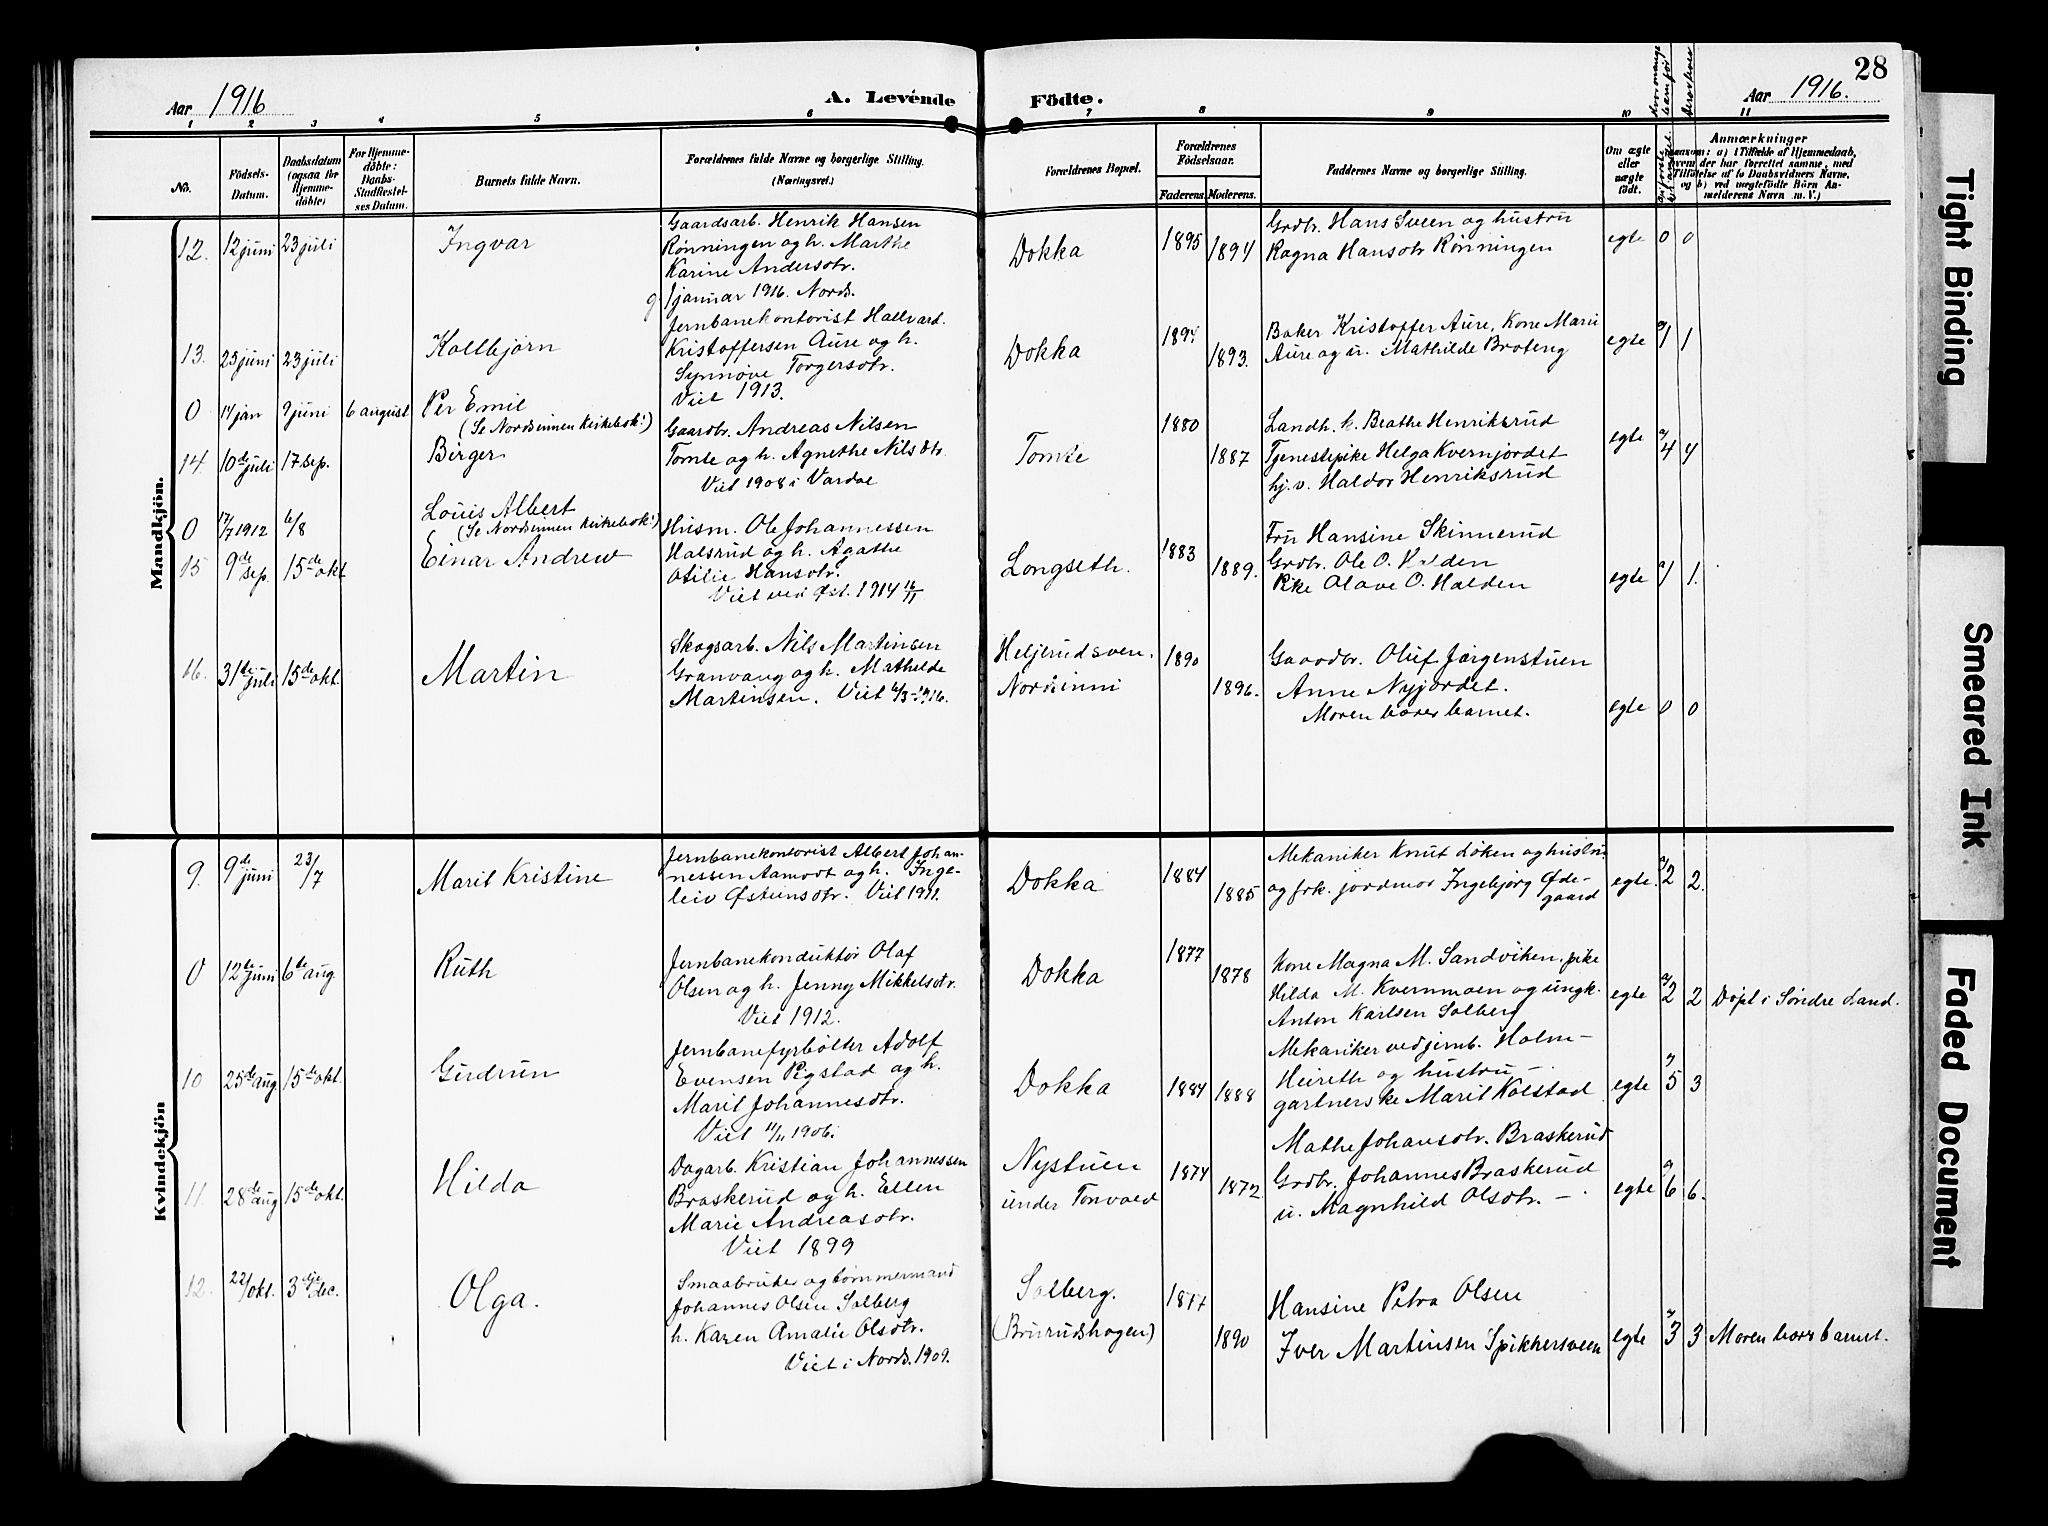 28
Aar 1916
A. Levende
Födte.
Aar 1916.
1 2 3 4 5 6 7 8 9 10 11
No.
Födsels-
Datum.
Daabsdatum
(ogsaa for
Hjemme-
döbte)
For Hjemme-
döbte:
Daabs-
Stadfæstel-
ses Datum.
Barnets fulde Navn.
Forældrenes fulde Navne og borgerlige Stilling.
(Næringsvei.)
Forældrenes Bopæl.
Forældrenes
Födselsaar.
Faderens. Moderens.
Faddernes Navne og borgerlige Stilling.
Om ægte
eller
uægte
født.
Anmærkninger
saasom: a) i Tilfælde af Hjemmedaab,
hvem der har forrettet samme, med
Tilføielse af to Daabsvidners Navne,
og b) ved uægtefödte Börn An-
melderens Navn m. V.)
Mandkjön.
12. 12 juni 23 juli
Ingvar
Gaardsarb. Henrik Hansen
Rønningen og h. Marthe
Karine Andersdtr.
g. januar 1916. Nords.
Dokka
1895
1894
Grdbr. Hans Sveen og hustru
Ragna Hansdtr Rønningen
egte 0 0
13. 25 juni 23 juli
Kolbjørn
Jernbanekontorist Hallvard
Kristoffersen Aure og h.
Synnøve Torgersdtr.
Viet 1913.
Dokka
1894
1893.
Baker Kristoffer Aure, Kone Marie
Aure og u. Mathilde Broteng
egte 1 1
0 14 jan 9 juni 6 august
Per Emil
(Se Nordsinnen Kirkebok!)
14. 10de juli 17 sep.
Birger
Gaardbr. Andreas Nilsen
Tomte og h. Agnethe Nilsdtr.
Viet 1908 i Vardal
Tomte
1880
1887
Landh. k. Beathe Henriksrud
Tjenestepike Helga Kvernjordet
hj. v. Haldor Henriksrud
egte 4 4
0 17/7 1912 6/8
Louis Albert
(Se Nordsinnen Kirkebok!)
15 9de sep. 15de okt
Einar Andrew
Husm. Ole Johannessen
Halsrud og h. Agathe
Otilie Hansdtr.
Longseth.
1883
1889.
Fru Hansine Skinnerud
Grdbr. Ole O. Halden
Pike Olave O. Halden
egte 1 1.
16. 31te juli 15de okt.
Martin
Skogsarb. Nils Martinsen
Granvang og h. Mathilde
Martinsen.
Heljerudsven.
Nordsinni
1890
1896.
Gaardbr. Oluf Jørgenstuen
Anne Nyjordet.
Moren bærer barnet.
egte 0 0
Kvindekjön
9. 9de juni 23/7
Marit Kristine
Jernbanekontorist Albert Johan-
nessen Aamodt og h. Inge-
leiv Østensdtr. Viet 1911.
Dokka
1884
1885
Mekaniker Knut Løken og hustru
og frk. jordmor Ingebjørg Øde-
gaard
egte. 2 2.
0 12te juni 6te aug
Ruth
Jernbanekonduktør Olaf
Olsen og h. Jenny Mikkelsdtr.
Viet 1912.
Dokka
1877
1878
Kone Magna M. Sandviken, pike
Hilda M. Kvernmoen og ungk.
Anton Karlsen Solberg
egte 2 2 Døpt i Søndre Land.
10 25de aug 15de okt.
Gudrun
Jernbanefyrbøter Adolf
Evensen Rigstad og h.
Marit Johannesdtr.
Viet 11/11 1906.
Dokka
1884
1888
Mekaniker ved jernb. Holm-
Heireth og hustru —
gartnerske Marit Kolstad
egte 5 3
11 28de aug 15de okt.
Hilda
Dagarb. Kristian Johannessen
Braskerud og h. Ellen
Marie Andreasdtr.
Viet 1899
Nystuen
under Tonvold
1874
1872.
Mathe Johansdtr. Braskerud
Grdbr. Johannes Braskerud
u. Magnhild Olsdtr. —
egte 6 6.
12. 22/okt. 3dje dec.
Olga.
Smaabruker og tømmermand
Johannes Olsen Solberg
h. Karen Amalie Olsdtr.
Viet i Nords. 1909.
Solberg.
(Brurudshagen)
1877
1890
Hansine Petra Olsen
Iver Martinsen Spikkersveen
egte 3 3 Moren bærr barnet.
Tight Binding
Smeared Ink
Faded Document